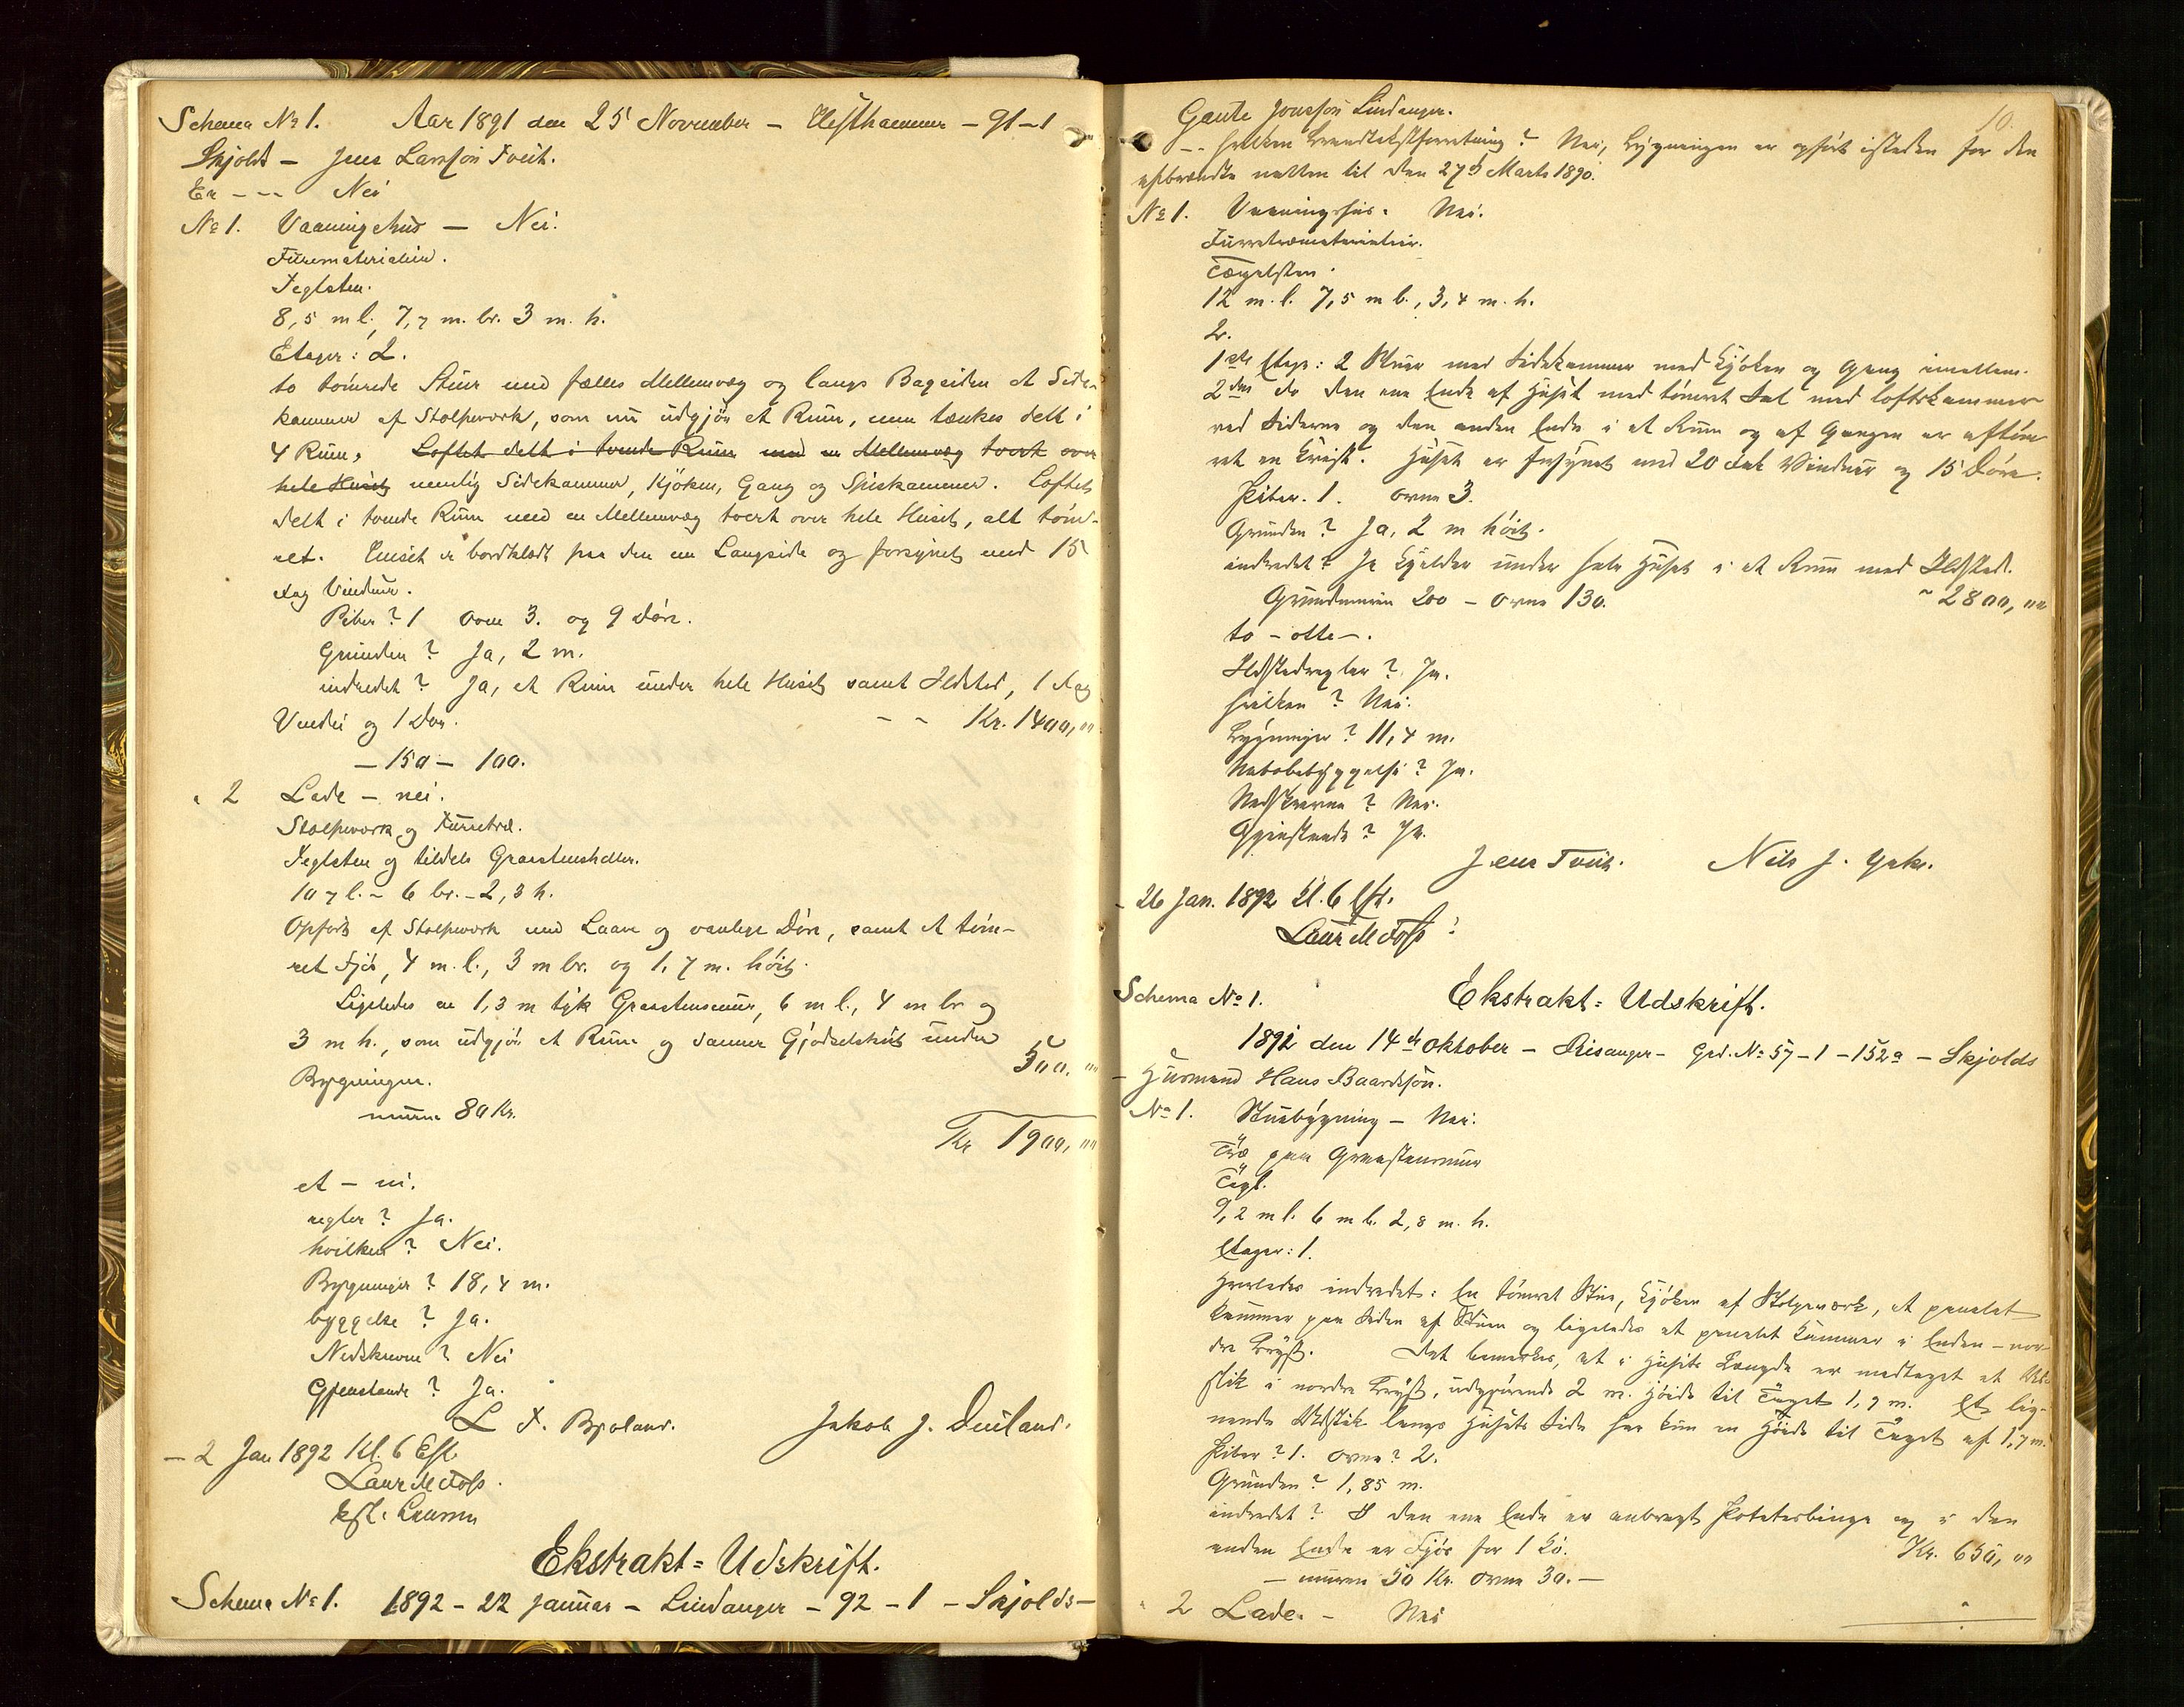 Schema № 1. Aar 1891 den 25 November – Hesthammer – 91–1
Skjold – Jens Larssön Tveit.
Er - - - Nei
№ 1. Vaaningshus – Nei.
Furematerialier.
Teglsten.
8,5 m l., 7,7 m. br. 3 m. h.
Etager: 2.
to tömrede Stuer med fælles Mellemvæg og langs Bagsiden et Side-
kammer af Stolpeværk, som nu udgjör et Rum, men tænkes delt i
4 Rum, Loftet delt i tvende Rum med en Mellemvæg tvert over
hele Huset nemlig Sidekammer, Kjöken, Gang og Spiskammer. Loftet
delt i tvende Rum med en Mellemvæg tvert over hele Huset, alt töm-
ret. Huset er bordklædt paa den ene Langside og forsynet med 15
fag Vinduer.
Piber? 1 Ovne 3. og 9 Döre.
Grunden? Ja, 2 m.
indredet? Ja, et Rum under hele Huset samt Ildsted, 1 fag
Vindu og 1 Dör. - - Kr. 1400,00
– 150 – 100.
" 2 Lade – nei.
Stolpeværk og Furretræ.
Teglsten og tildels Graastensheller.
10,7 l. – 6 br. – 2,3 h.
Opfört af Stolpeværk med Laave og vanlige Döre, samt et töm-
ret Fjös, 4 m. l., 3 m br. og 1,7 m. höit.
Ligeledes en 1,3 m tyk Graastensmur, 6 m l., 4 m br og
3 m h., som udgjör et Rum og danner Gjödselshus under
Bygningen. 500,00
muren 80 Kr.
Kr 1900,00
et – ni.
regler? Ja.
hvilken? Nei.
Bygninger? 18,4 m.
byggelse? Ja.
Nedskrevne? Nei
Gjenstande? Ja.
L T. Bjoland. Jakob J. Dueland.
– 2 Jan 1892 Kl. 6 Eft.
Laur M Foss.
Kst. Lensm
Ekstrakt=Udskrift.
Schema № 1. 1892 – 22 januar – Lindanger – 92 – 1 – Skjolds –
10.
Gaute Jonassön Lindanger.
– - hvilken Brandtakstforretning? Nei, Bygningen er opfört isteden for den
afbrændte natten til den 27de Marts 1890.
№ 1. Vaaningshus. Nei.
Furretræmaterialier.
Tægelsten.
12 m. l. 7,5 m b., 3,4 m. h.
2.
1ste Etage: 2 Stuer med Sidekammer med Kjöken og Gang imellem.
2den do den ene Ende af Huset med tömret Sal med loftskammer
ved Siderne og den anden Ende i et Rum og af Gangen er aftöm-
ret en Kvist. Huset er forsynet med 20 Fak Vinduer og 15 Döre.
Piber. 1. Ovne 3.
Grunden? Ja, 2 m höit.
indredet? Ja Kjelder under hele Huset i et Rum med Ildsted.
Grundmuren 200 – Ovne 130. " 2800,00
to – otte –.
Ildstedregler? Ja.
hvilken? Nei.
Bygninger? 11,4 m.
Nabobebyggelse? Ja.
Nedskrevne? Nei.
Gjenstande? Ja.
Jens Tveit. Nils J. Yrke.
– 26 Jan. 1892 Kl. 6 Eft.
Laur M Foss
Schema № 1. Ekstrakt=Udskrift.
1892 den 14de Oktober – Risanger – Grd. № 57 – 1 – 152a – Skjolds
– Husmand Hans Baardsön.
№ 1. Stuebygning – Nei.
Træ paa Graastensmur
Tægl.
9,2 m l. 6 m b. 2,8 m. h.
Etager: 1.
Hvorledes indredet: En tömret Stue, Kjöken af Stolpeværk, et panelet
Kammer paa Siden af Stuen og ligeledes et panelet Kammer i Enden – nor-
dre Bryst. Det bemærkes, at i Husets Længde er medtaget et Ud-
stik i nordre Bryst, udgjörende 2 m. Höide til Taget 1,9 m. Et lig-
nende Udstik langs Husets Side har kun en Höide til Taget af 1,7 m.
Piber? 1. Ovne? 2.
Grunden? 1,85 m.
indredet? I den ene Ende er anbragt Potetesbinge og i den
anden Ende er Fjös for 1 Ko. Kr. 650,00
– muren 50 Kr. Ovne 30. –
" 2 Lade. – Nei